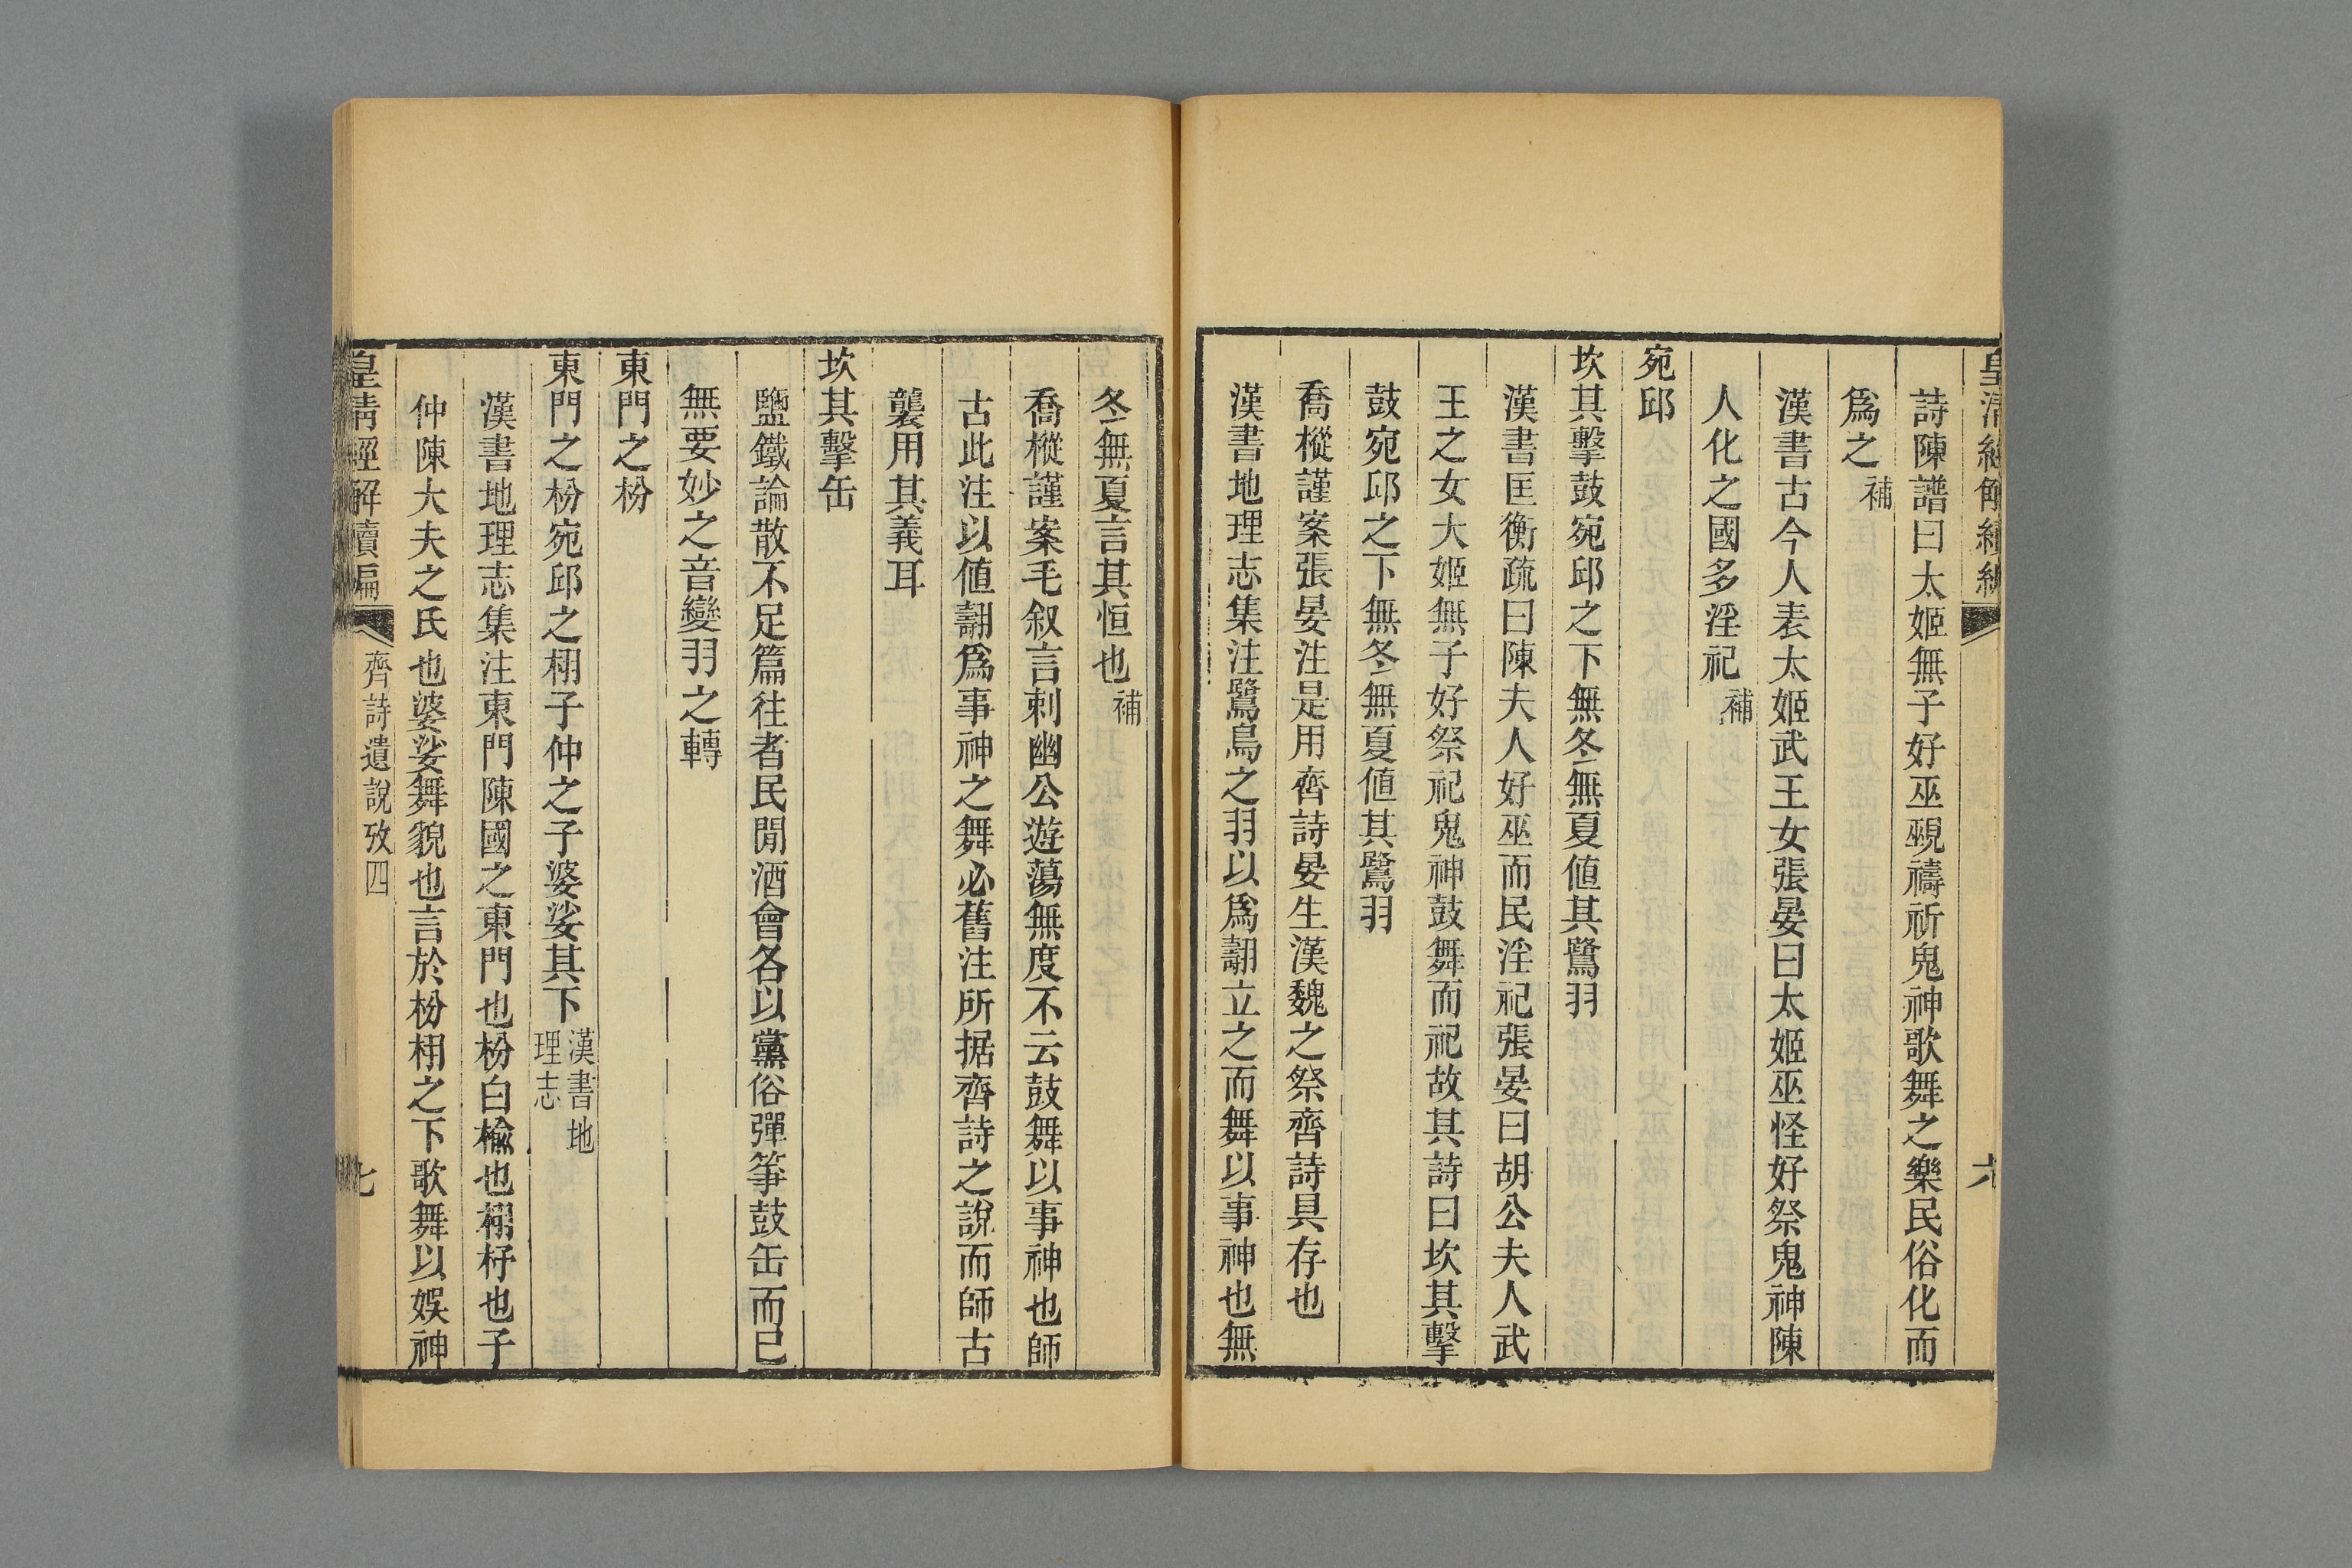 皇清經解續編
六
詩陳譜曰太姬無子好巫覡禱祈鬼神歌舞之樂民俗化而
爲之補
漢書古今人表太姬武王女張晏曰太姬巫怪好祭鬼神陳
人化之國多淫祀補
宛邱
坎其擊鼓宛邱之下無冬無夏值其鷺羽
漢書匡衡疏曰陳夫人好巫而民淫祀張晏曰胡公夫人武
王之女大姬無子好祭祀鬼神鼓舞而祀故其詩曰坎其擊
鼓宛邱之下無冬無夏值其鷺羽
喬樅謹案張晏注是用齊詩晏生漢魏之祭齊詩具存也
漢書地理志集注鷺鳥之羽以爲翿立之而舞以事神也無
冬無夏言其恒也補
喬樅謹案毛叙言刺幽公遊蕩無度不云鼓舞以事神也師
古此注以值翿爲事神之舞必舊注所据齊詩之說而師古
襲用其義耳
坎其擊缶
鹽鐵論散不足篇往者民閒酒會各以黨俗彈箏鼓缶而已
無要妙之音變羽之轉
東門之枌
東門之枌宛邱之栩子仲之子婆娑其下漢書地理志
漢書地理志集注東門陳國之東門也枌白楡也栩杼也子
仲陳大夫之氏也婆娑舞貌也言於枌栩之下歌舞以娛神
皇清經解續編
齊詩遺說攷四
七